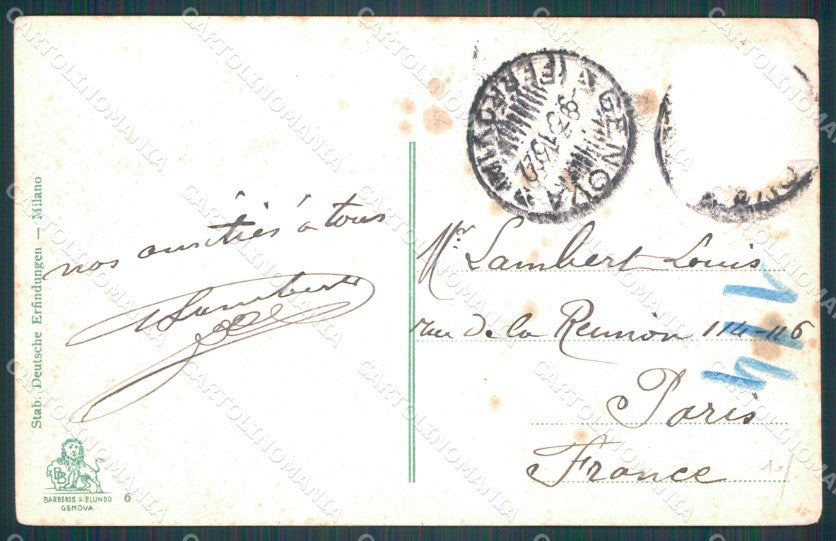 GENOVA
(FERROVIA)
nos amitiés à tous
Lambert
Mr. Lambert Louis
rue de la Reunion 114-116
Paris
France
Stab. Deutsche Erfindungen — Milano
BB
BARBERIS & BLUNDO
GENOVA
6
CARTOLINOMANIA